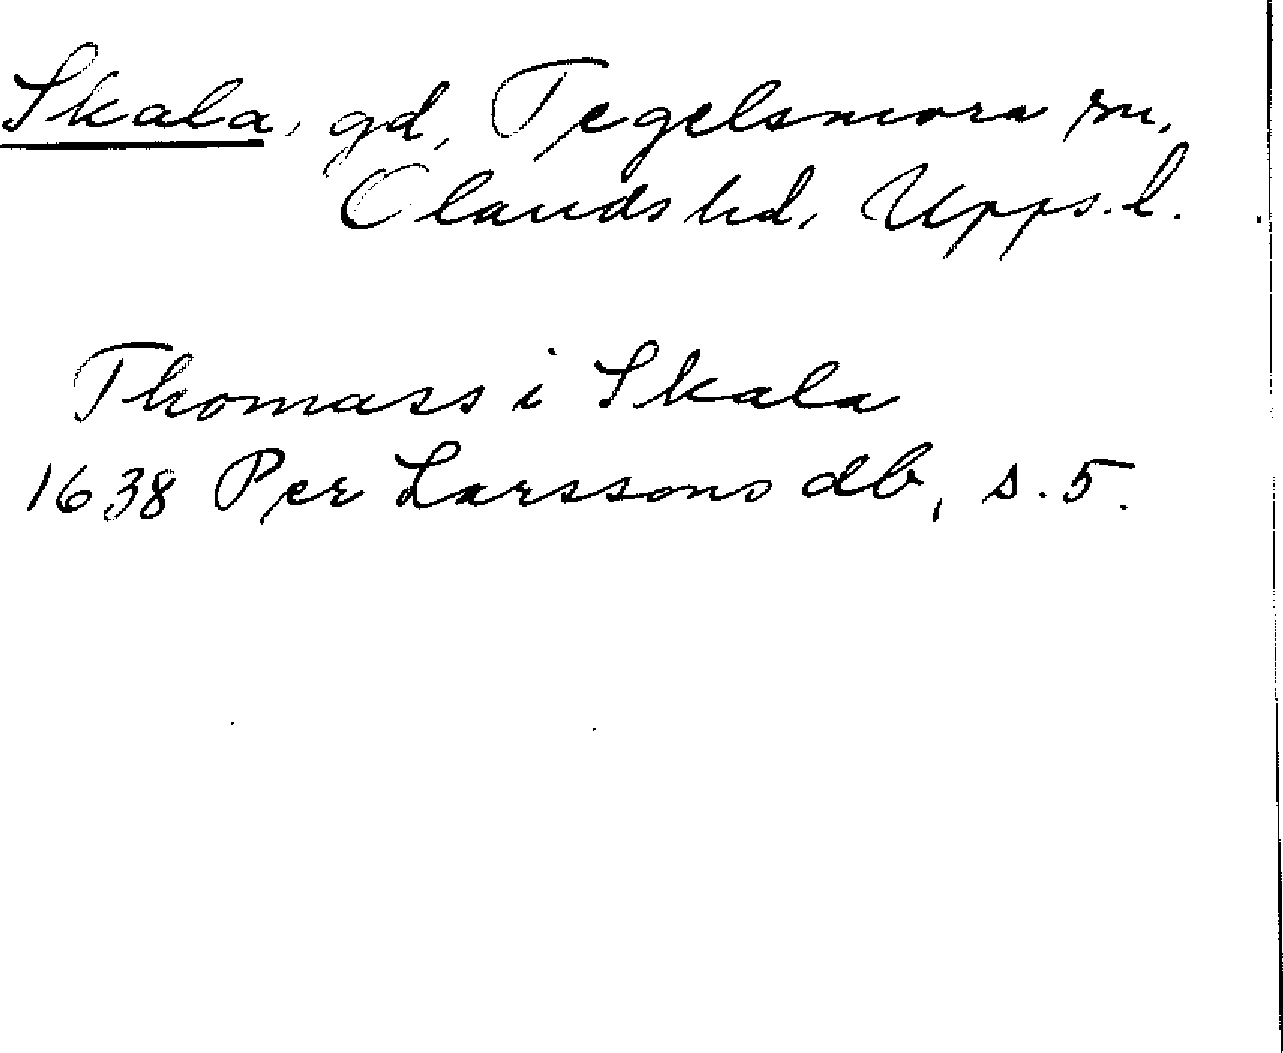 Skala, gd, Tegelsmora sn,
Olands hd, Upps. l.
Thomass i Skala
1638 Per Larssons db, s. 5.